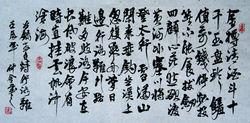 金樽清酒斗十
千玉盤珍羞
值萬錢停杯投
箸不能食拔劍
四顧心茫然欲渡
黃河冰塞川將
登太行雪滿山
閒來垂釣碧溪上
忽復乘舟夢日
邊行路難行路
難多歧路今安在
長風破浪會有時
直掛雲帆濟滄海
李白詩行路難